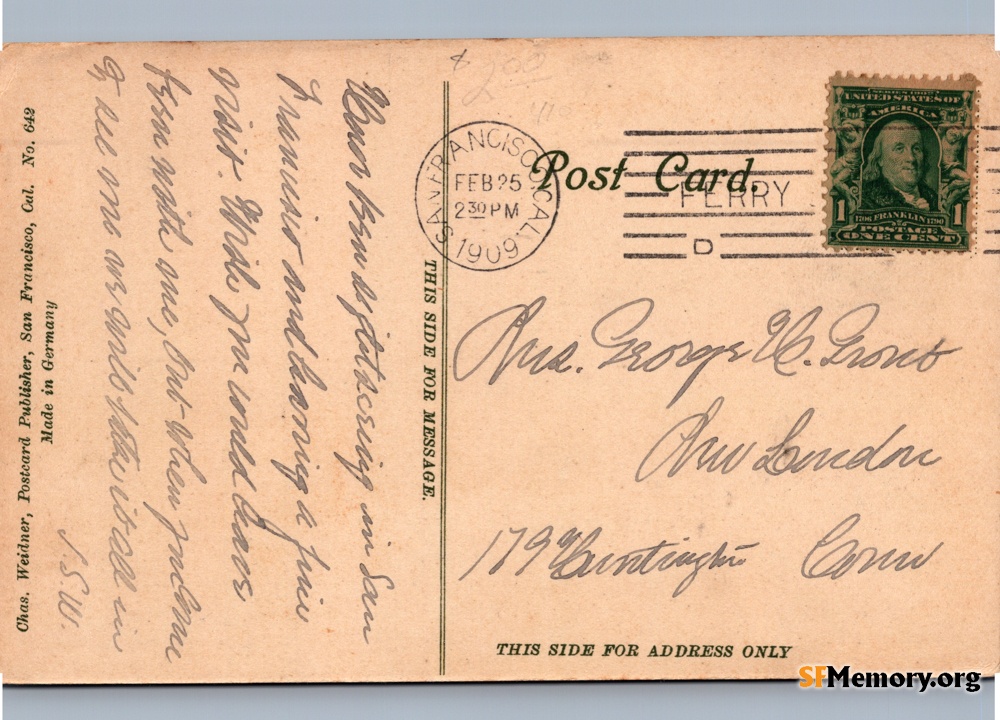 Post Card.
SAN FRANCISCO, CAL.
FEB 25
2 30 PM
1909
FERRY S
D
SERIES 1902
UNITED STATES OF
AMERICA
1706 FRANKLIN 1790
1 POSTAGE 1
ONE CENT
$2.00
Have been sightseeing in San
Francisco and having a fine
visit. Wish you could have
been with me, but when you come
to see me we will take it all in
J.S.W.
THIS SIDE FOR MESSAGE.
Chas. Weidner, Postcard Publisher, San Francisco, Cal. No. 642
Made in Germany
Mrs. George H.
New London
179 Huntington Conn
THIS SIDE FOR ADDRESS ONLY
SFMemory.org